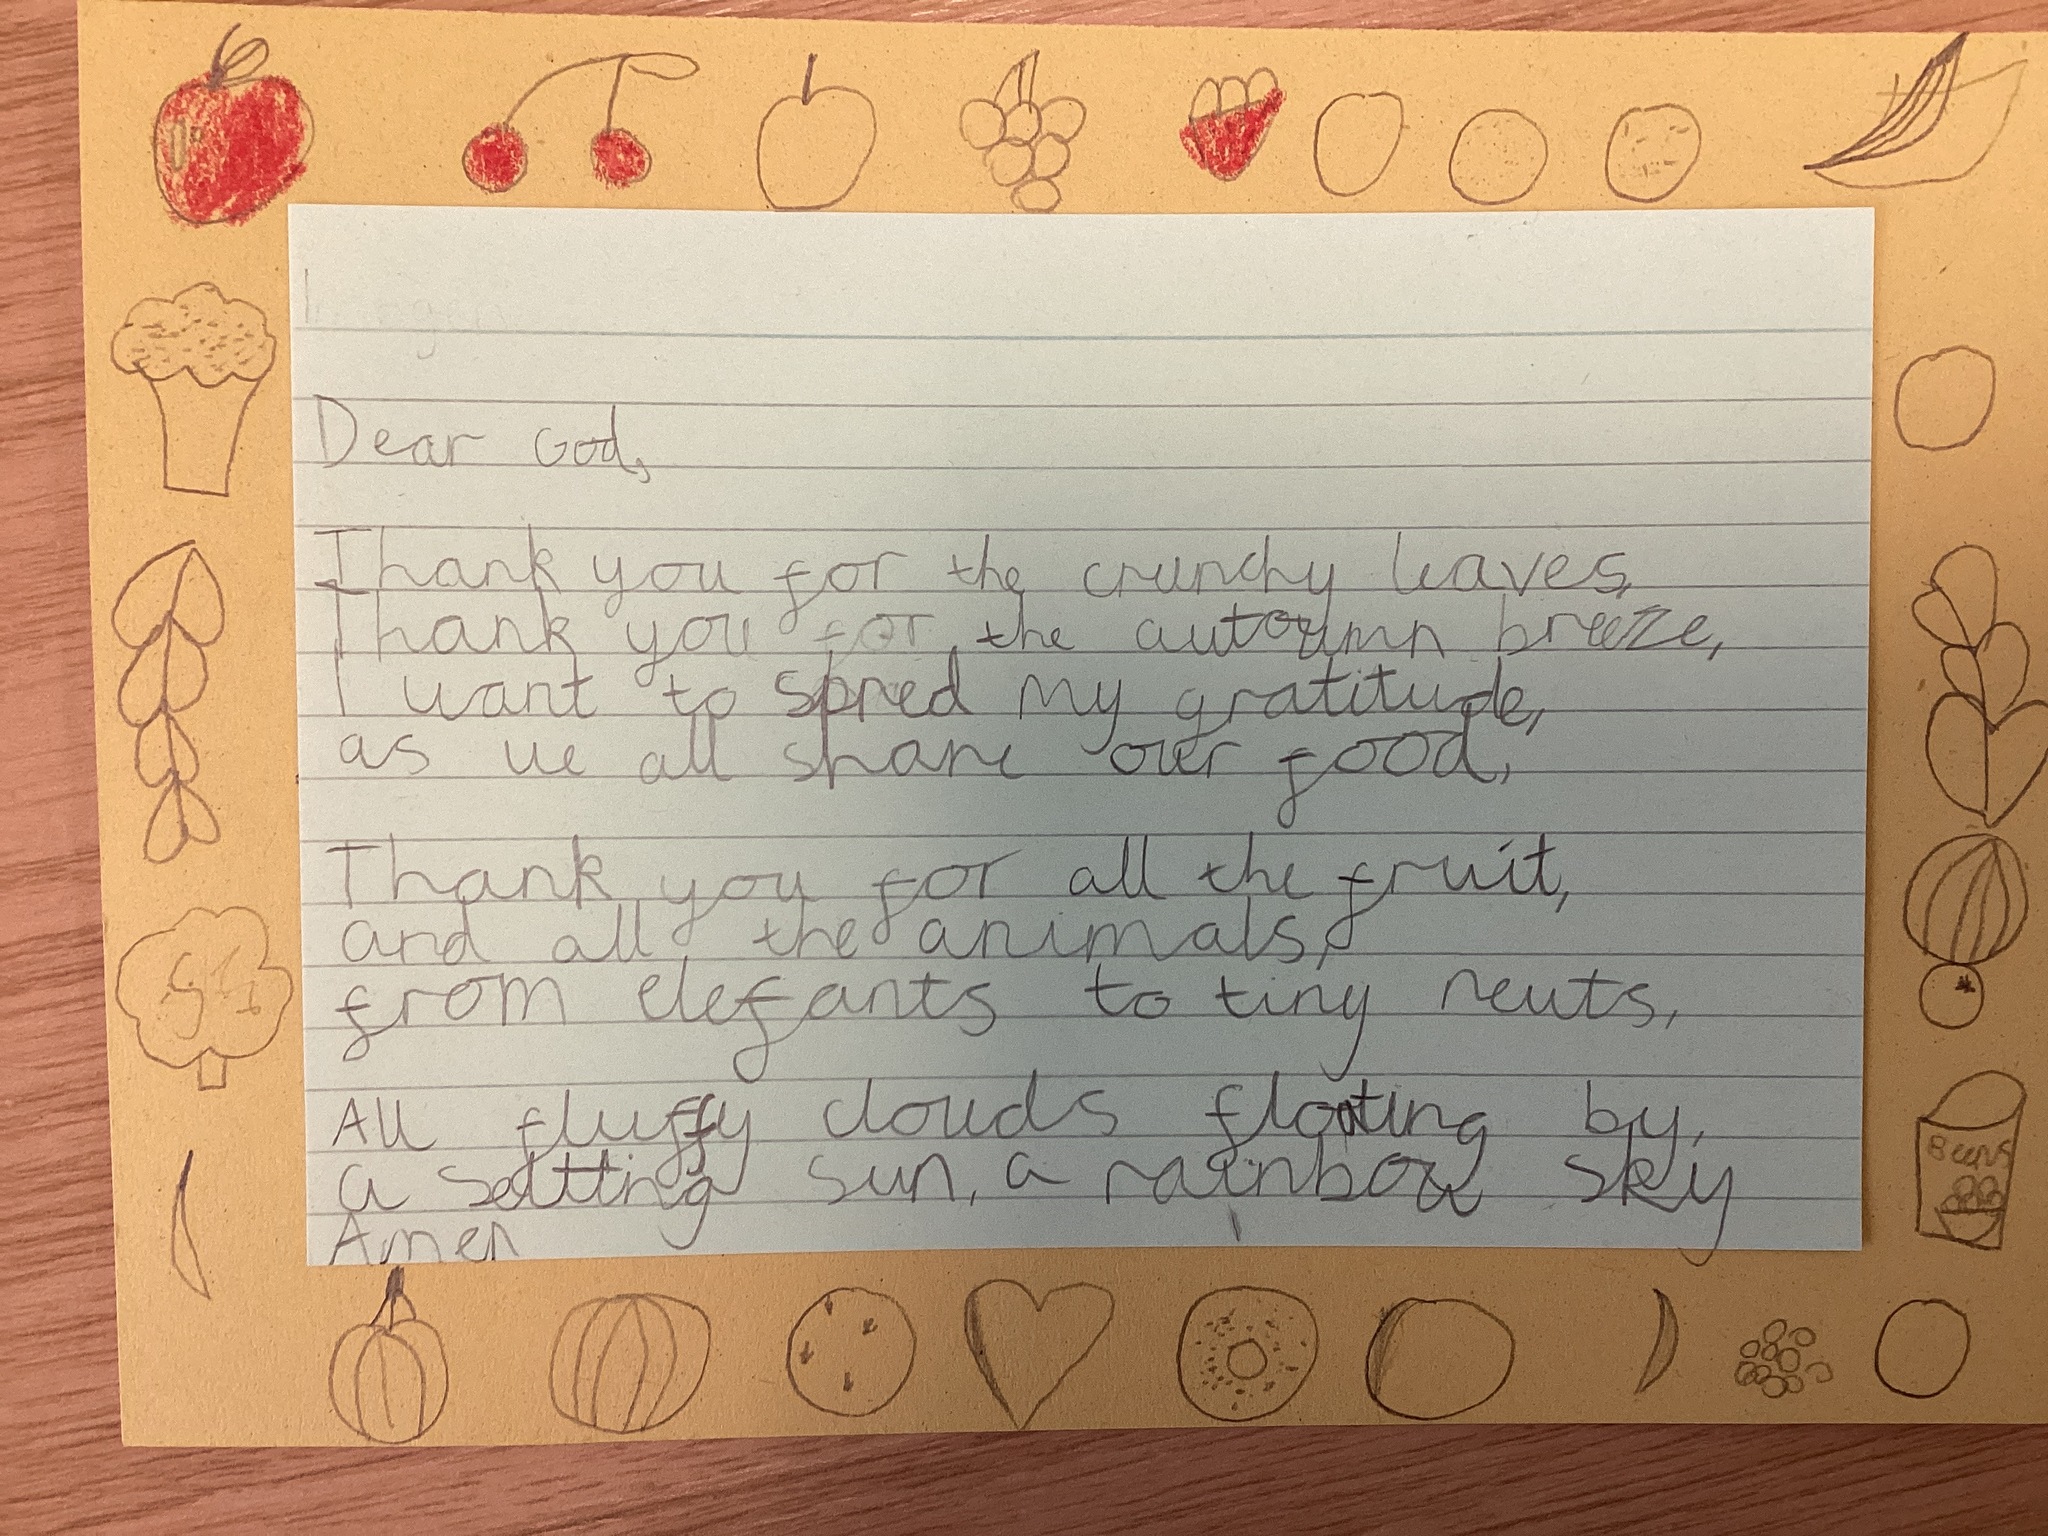 Imogen
Dear God,
Thank you for the crunchy leaves,
Thank you for the autoumn breeze,
I want to spred my gratitude,
as we all share our food,
Thank you for all the fruit,
and all the animals,
from elefants to tiny neuts,
All fluffy clouds floating by,
a setting sun, a rainbow sky
Amen
Beens